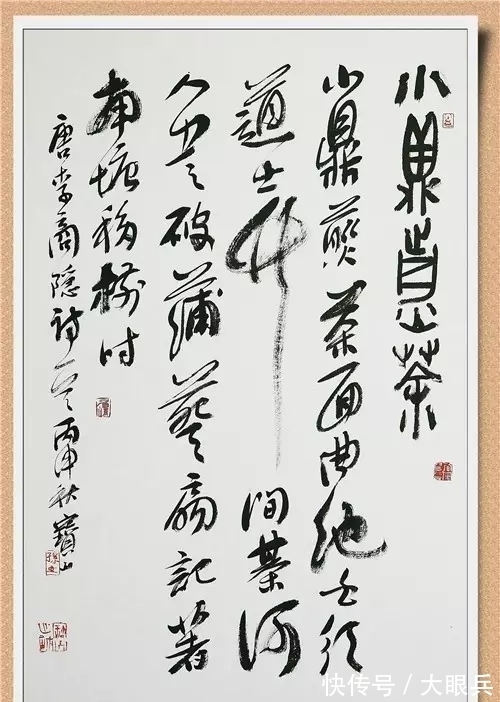 小鼎煎茶
小鼎煎茶面曲池白须
道士竹间棊何
人书破蒲葵扇記著
南塘移樹时
唐李商隐诗一首丙申秋寶山
快传号/大眼兵